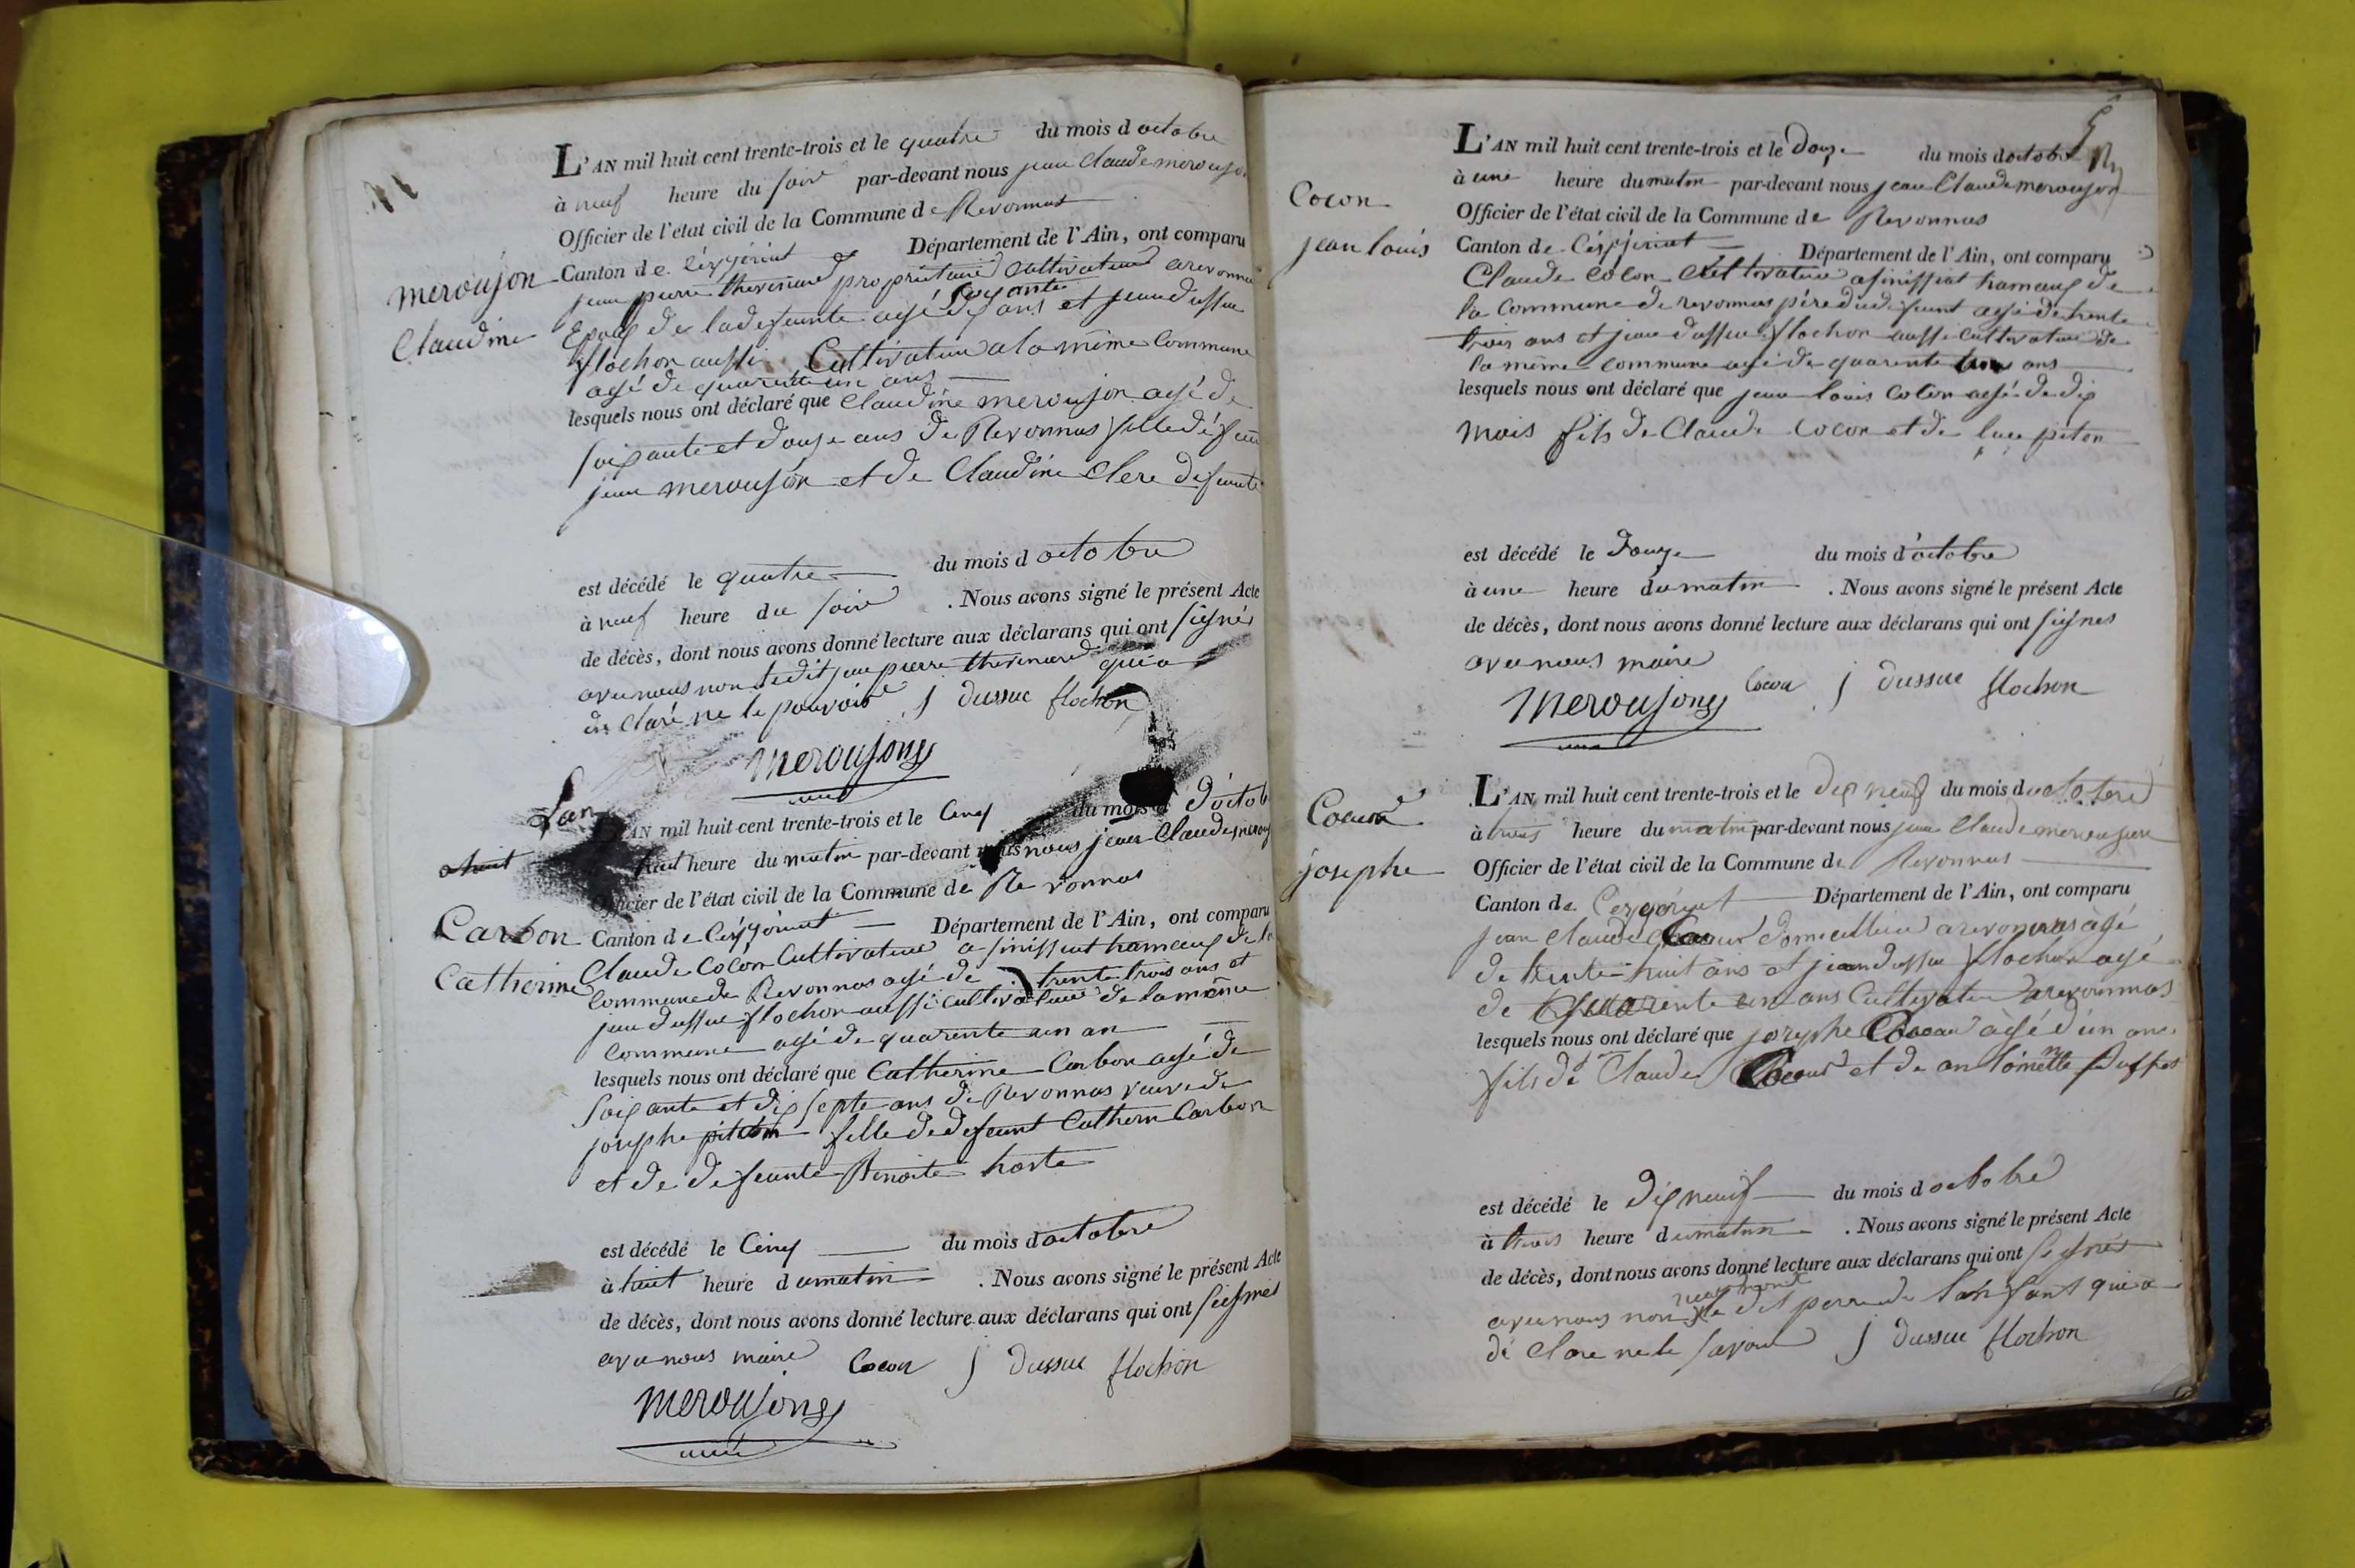 L'AN mil huit cent trente-trois et le quatre du mois d octobre
à neuf heure du soir par-devant nous jean Claude meroujon
Officier de l'état civil de la Commune de Revonnas
Canton de Céyzériat Département de l'Ain, ont comparu
meroujon
Claudine
jean pierre thevenard propriétaire Cultivateur a revonnas
Epoux de la defeunte agé de soixante ans et jean dussuc
flochon aussi Cultivateur a la même Commune
agé de quarente un ans
lesquels nous ont déclaré que Claudine meroujon agé de
soixante et douze ans de Revonnas fille de
jean meroujon et de Claudine Clere defeunte
est décédé le quatre du mois d octobre
à neuf heure du soir . Nous avons signé le présent Acte
de décès, dont nous avons donné lecture aux déclarans qui ont signés
avec nous non ledit jean pierre thevenard qui a
dé Claré ne le pouvoir J dussuc flochon
meroujong
Lan
AN mil huit cent trente-trois et le Cinq du mois d d'octob
a huit huit heure du matin par-devant nous nous jean Claude merouj
Officier de l'état civil de la Commune de Re vonnas
Carbon
Catherine
Canton de Céyzériat Département de l'Ain, ont comparu
Claude Cocon Cultivateur a sinissiat hameaux de la
Commune de Revonnas agé de trente trois ans et
jean dussuc flochon aussi cultivateur de la même
Commune agé de quarente un an
lesquels nous ont déclaré que Catherine Carbon agé de
soixante et dix septe ans de Revonnas veuve de
josephe piteon fille de defeunt Cathern Carbon
et de defeunte Benoite
est décédé le Cinq du mois d octobre
à huit heure du matin . Nous avons signé le présent Acte
de décès, dont nous avons donné lecture aux déclarans qui ont signés
avec nous maire Cocon J dussuc flochon
meroujong
L'AN mil huit cent trente-trois et le Douze du mois d octobre
à une heure du matin par-devant nous jean Claude merouyon
Officier de l'état civil de la Commune de Revonnas
Cocon
jean louis
Canton de Céyzériat Département de l'Ain, ont comparu
Claude Cocon Cultivateur a sinissiat hameaux de
la Commune de revonnas pére du defeunt agé de trente
trois ans et jean dussuc flochon aussi cultivateur de
la même commune agé de quarente ans
lesquels nous ont déclaré que jean louis Cocon agé de dix
mois fils de Claude Cocon et de luce piton
est décédé le Douze du mois d'octobre
à une heure du matin . Nous avons signé le présent Acte
de décès, dont nous avons donné lecture aux déclarans qui ont signés
avec nous maire
meroujong Cocon J dussuc flochon
L'AN mil huit cent trente-trois et le dix neuf du mois d octobre
à trois heure du matin par-devant nous jean Claude merouyon
Officier de l'état civil de la Commune de Revonnas
josephe
Canton de Ceyzériat Département de l'Ain, ont comparu
jean Claude domicillier a revonnas agé
de trente huit ans et jean dussuc flochon agé
de quarente un ans Cultivateur a revonnas
lesquels nous ont déclaré que josephe agé d'un ans
fils de Claude et de
est décédé le dix neuf du mois d octobre
à trois heure du matin . Nous avons signé le présent Acte
de décès, dont nous avons donné lecture aux déclarans qui ont signés
avec nous non le dit perre de lanfant qui a
dé Clare ne le savoir J dussuc flochon